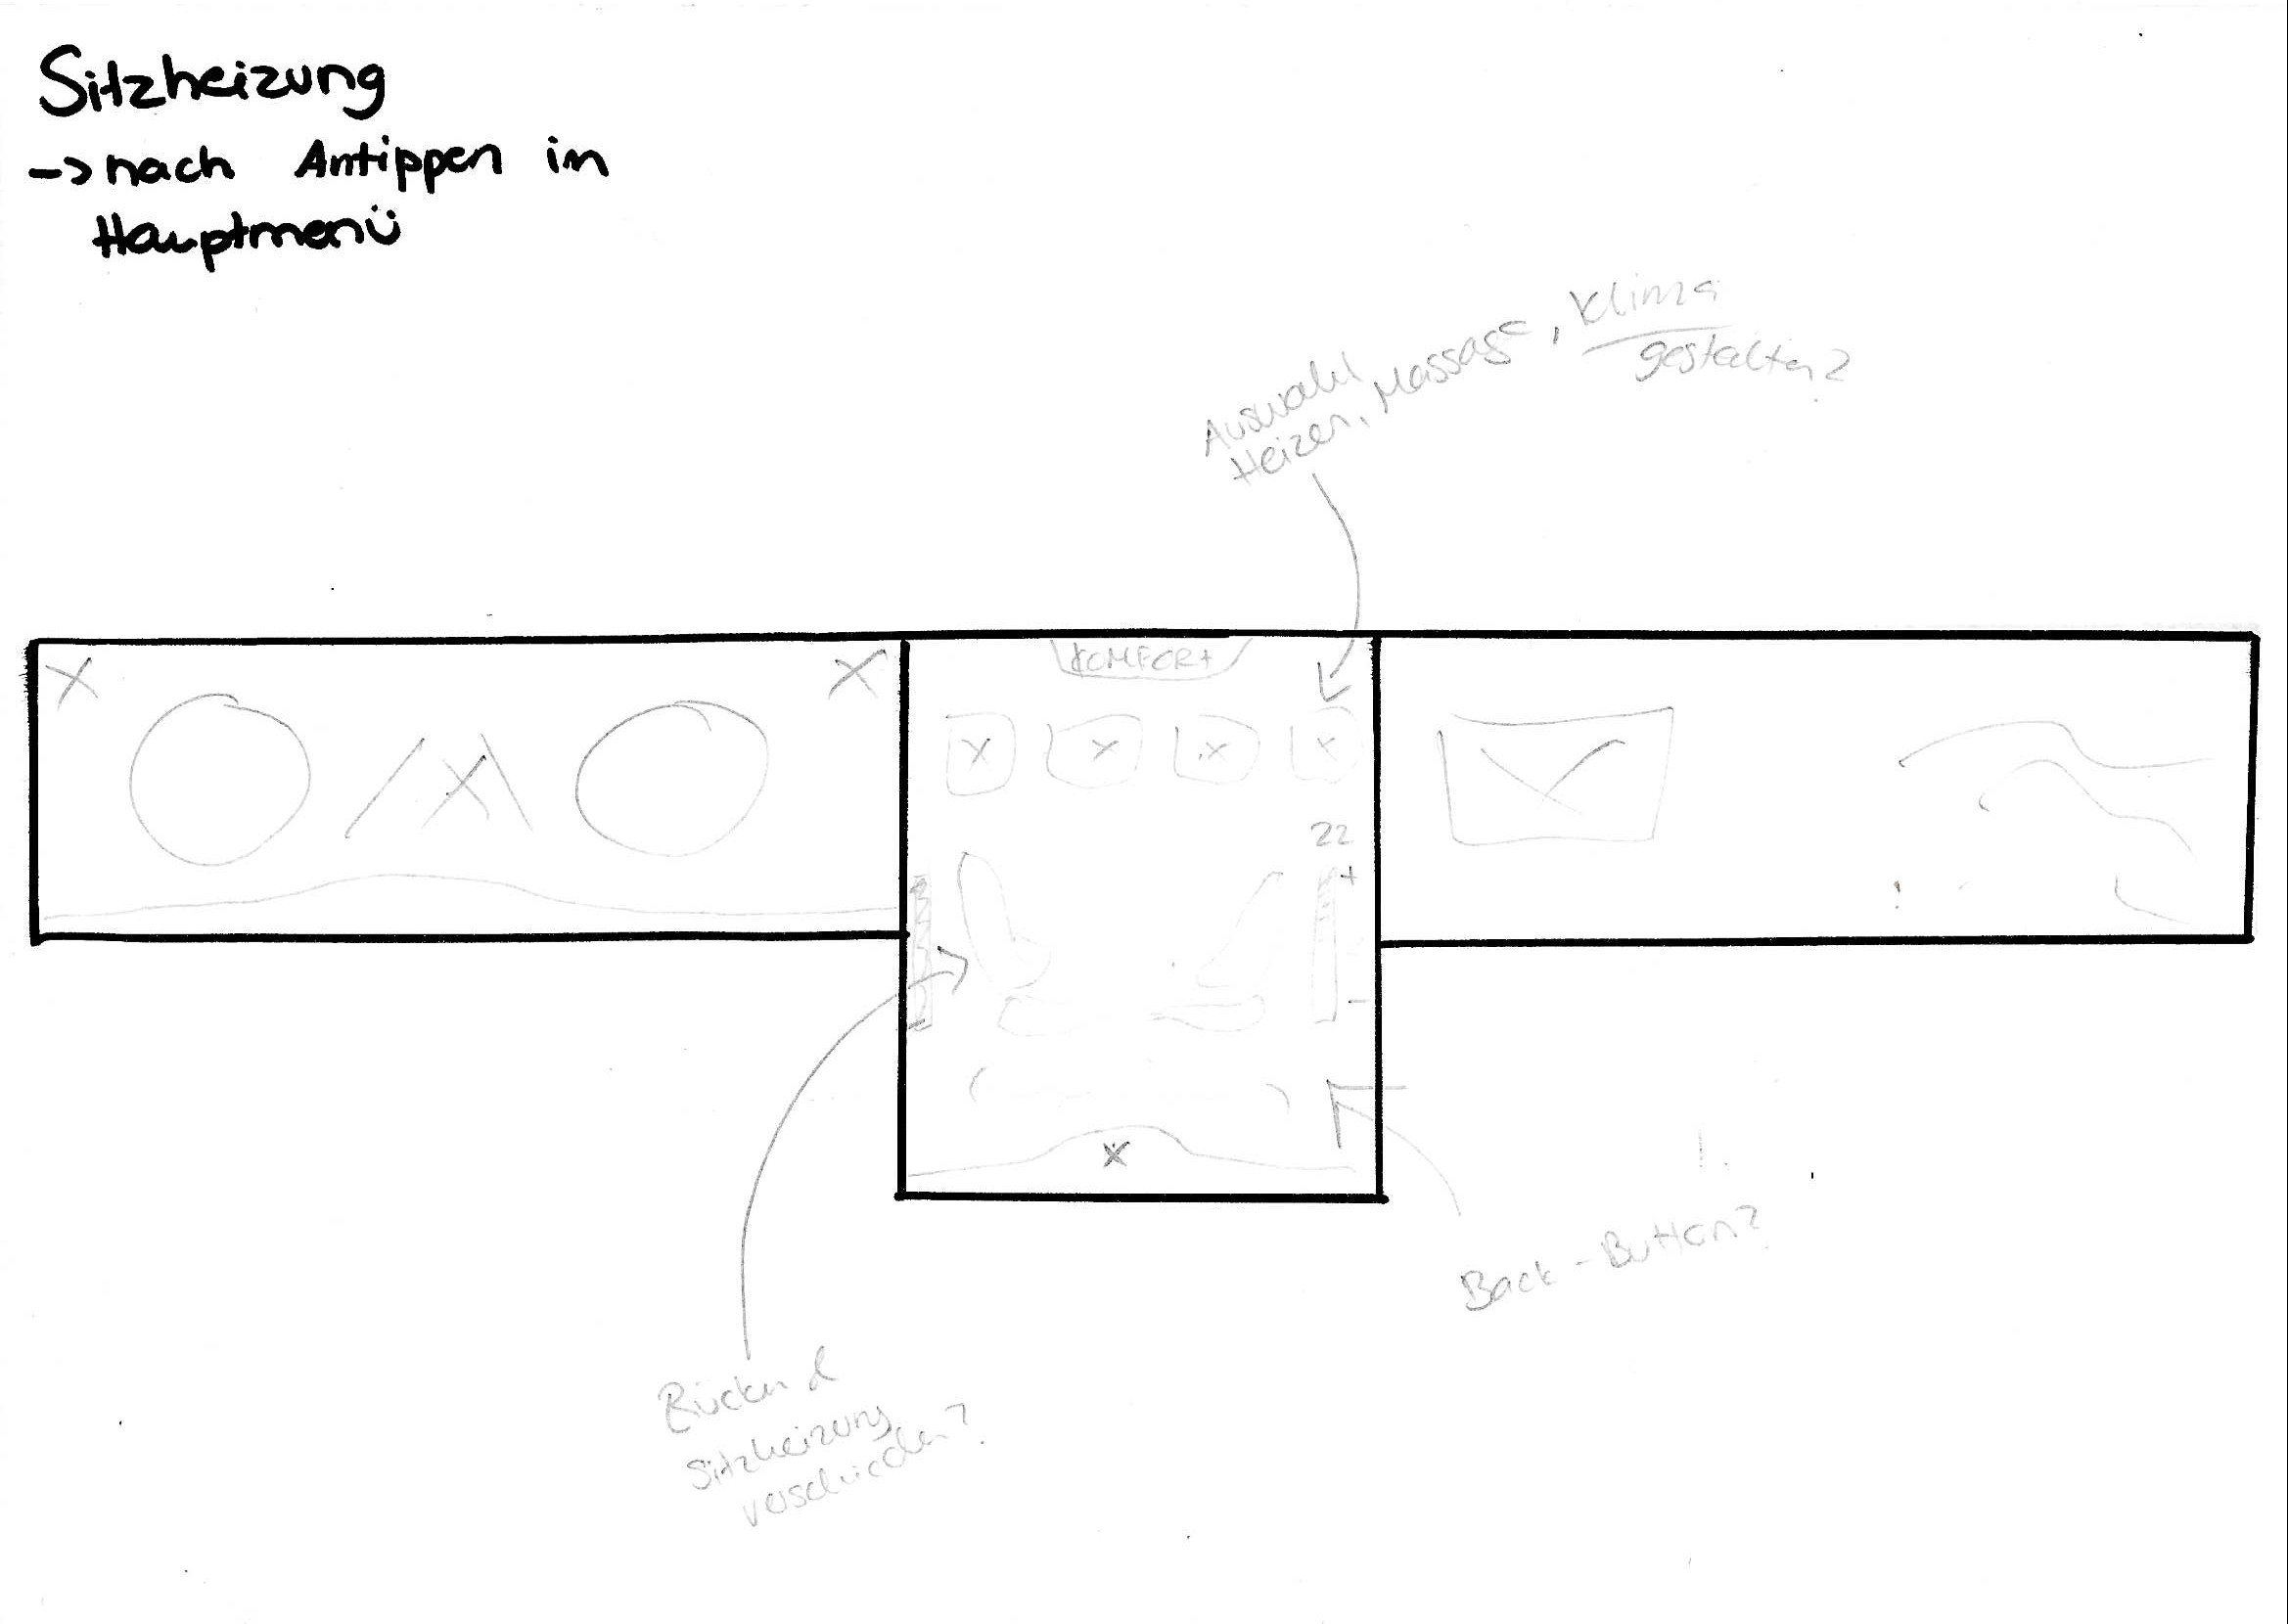 Sitzheizung
-> nach Antippen im
Hauptmenü
Auswahl
Heizen, Massage, Klima
gestalten?
KOMFORT
22
+
-
Back-Button?
Rücken &
Sitzheizung
verschieden?